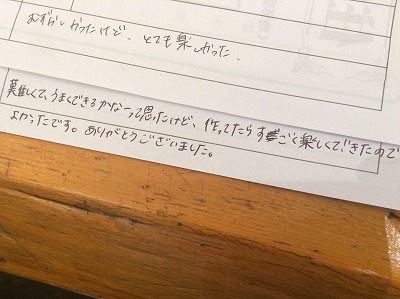 むずかしかったけど、とても楽しかった。
難しくて、うまくできるかなーって思ったけど、作ってたらすごく楽しくてできたので
よかったです。ありがとうございました。